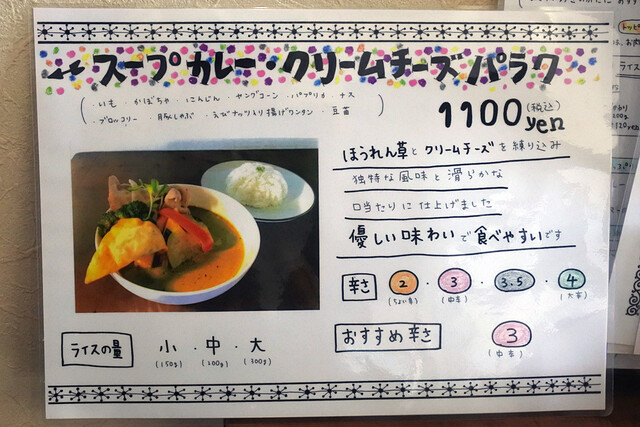 スープカレー・クリームチーズパラク
(・いも・かぼちゃ・にんじん・ヤングコーン・パプリカ・ナス
・ブロッコリー・豚しゃぶ・えびナッツ入り揚げワンタン・豆苗)
1100yen(税込)
ほうれん草とクリームチーズを練り込み
独特な風味と滑らかな
口当たりに仕上げました
優しい味わいで食べやすいです
辛さ 2・3・3.5・4
(ちょい辛) (中辛) (大辛)
おすすめ辛さ 3
(中辛)
ライスの量 小・中・大
(150g) (200g) (300g)